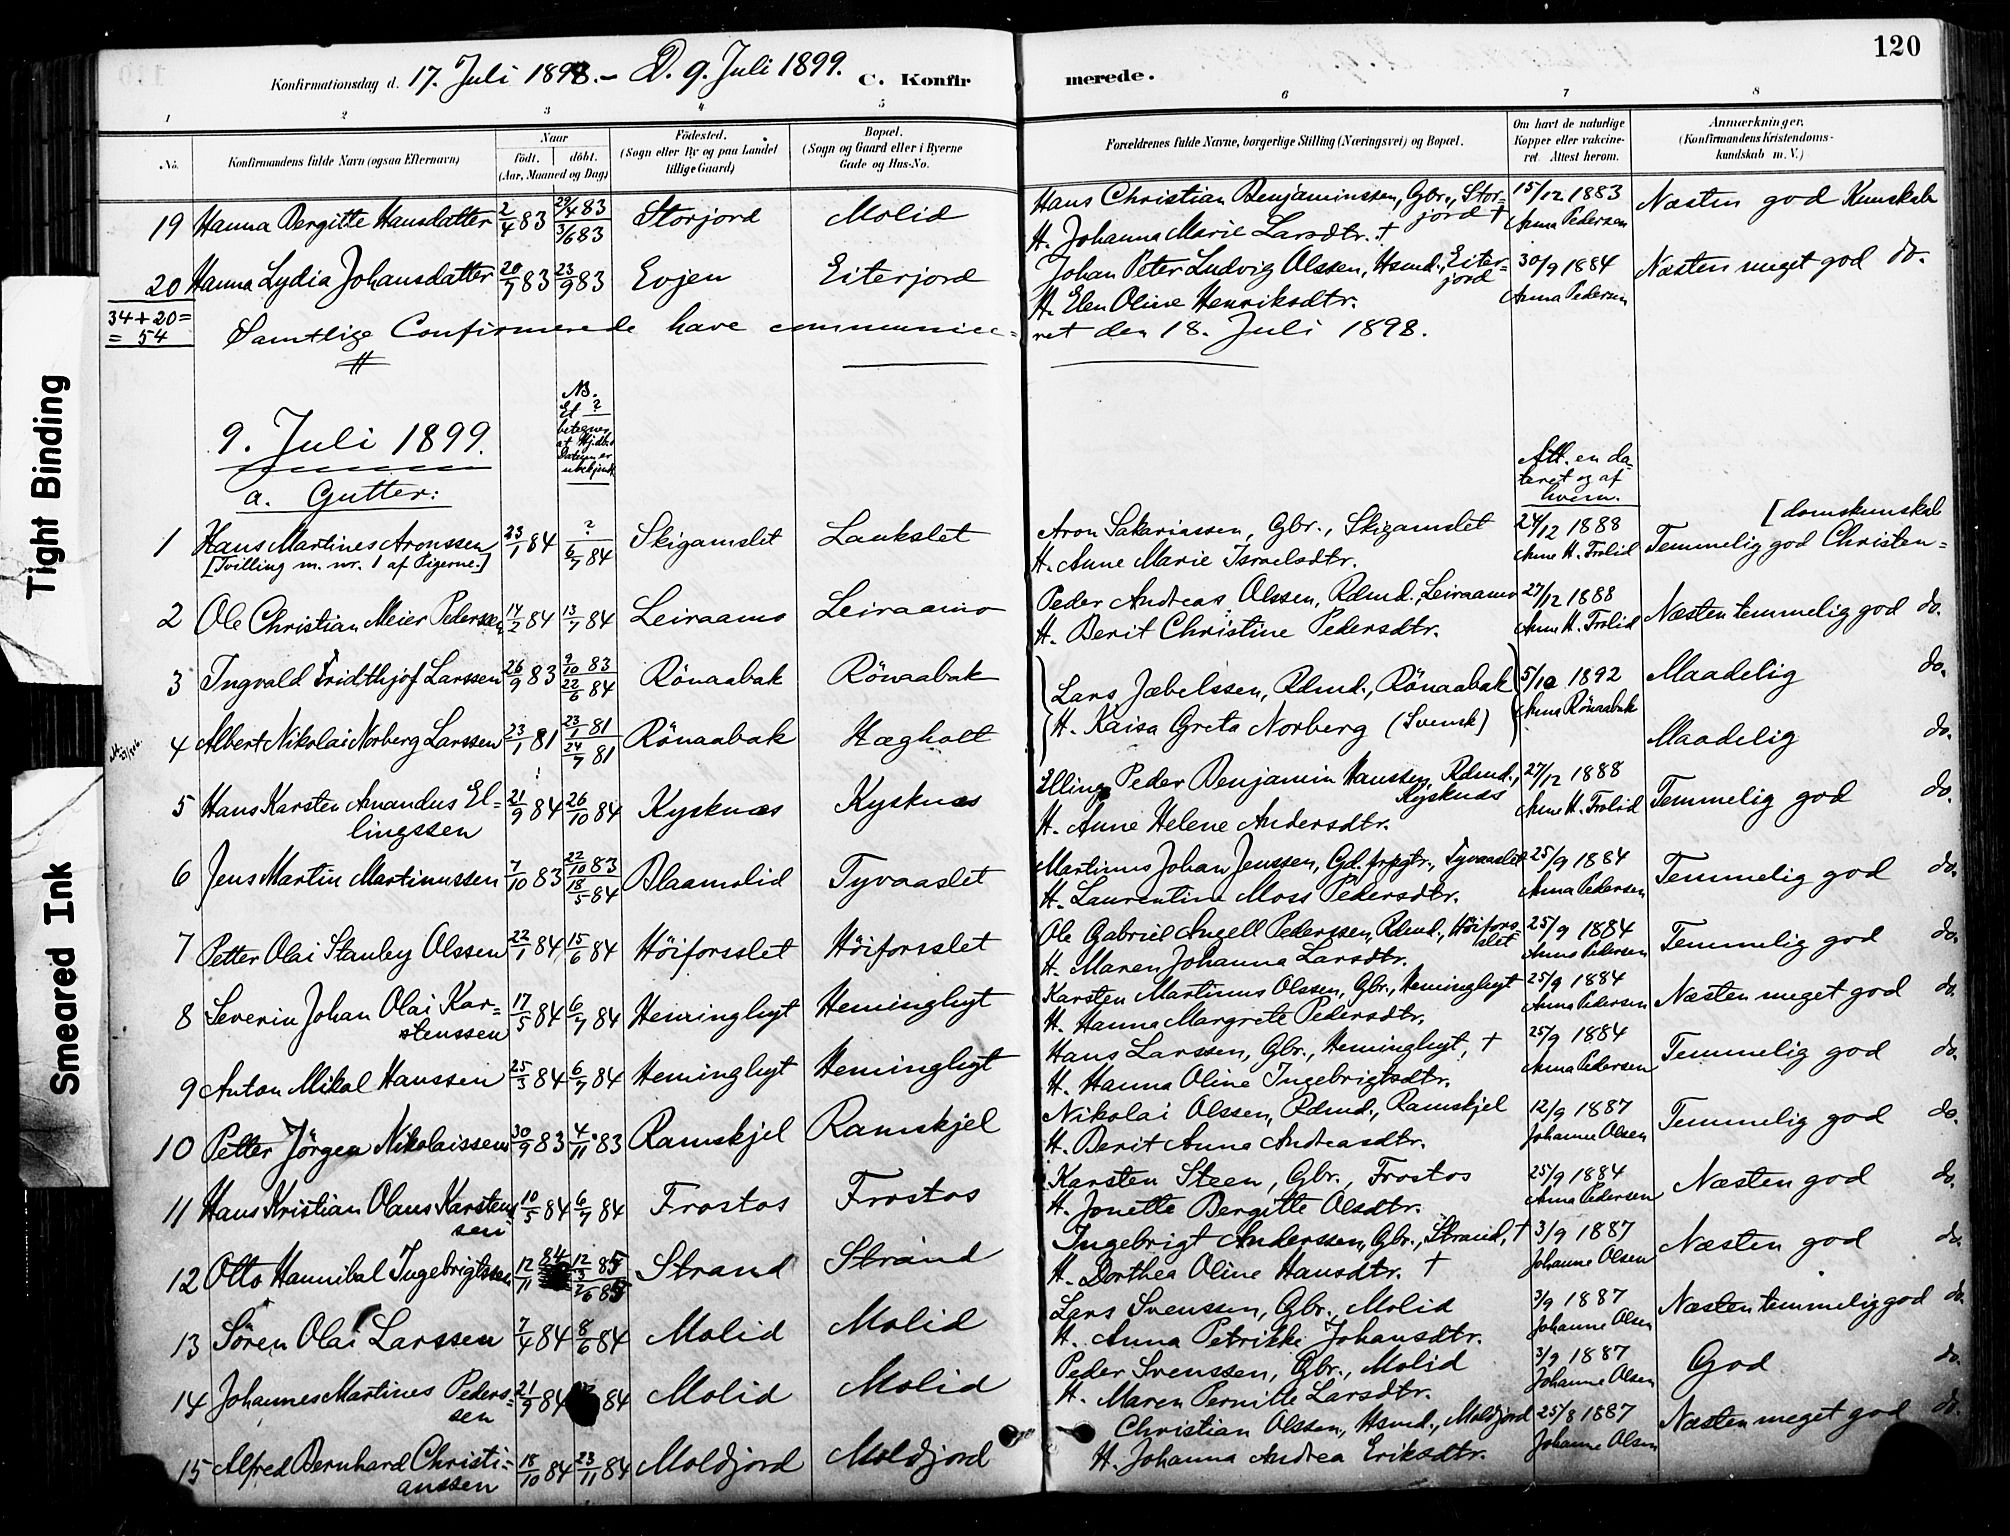 120
Konfirmationsdag d. 17. Juli 1898. – D. 9. Juli 1899. C. Konfirmerede.
1 2 3 4 5 6 7 8
No. Konfirmandens fulde Navn (ogsaa Efternavn) Naar født. døbt. (Aar, Maaned og Dag) Fødested. (Sogn eller By og paa Landet tillige Gaard) Bopæl. (Sogn og Gaard eller i Byerne Gade og Hus-No. Forældrenes fulde Navne, borgerlige Stilling (Næringsvei) og Bopæl. Om havt de naturlige Kopper eller vakcineret. Attest herom. Anmærkninger. (Konfirmandens Kristendomskundskab m. V.)
19 Hanna Bergitte Hansdatter 2/4 83 29/4 83 3/6 83 Storjord Molid Hans Christian Benjaminssen, Gbr., Storjord † 15/12 1883 Næsten god Kunskab
H. Johanna Marie Larsdtr. † Anna Pedersen
20 Hanna Lydia Johansdatter 20/7 83 23/9 83 Evjen Eiterjord Johan Peter Ludvig Olssen, Hsmd., Eiterjord 30/9 1884 Næsten meget god do.
H. Elen Oline Henriksdtr. Anna Pedersen
34+20=
= 54
Samtlige Confirmerede have communiceret den 18. Juli 1898.
9. Juli 1899.
NB. Et ? betegner at Hjdbs Datoen er ubekjendt
a. Gutter:
Att. en dateret og af hvem.
1 Hans Martines Aronssen 23/1 84 ? 6/7 84 Skigamslet Laukslet Aron Sakariassen, Gbr., Skigamslet 24/12 1888 Temmelig god Christen= [domskunskab
[Tvilling m. nr. 1 af Pigerne.] H. Anne Marie Israelsdtr. Anne H. Frolid
2 Ole Christian Meier Pederssen 14/2 84 13/7 84 Leiraamo Leiraamo Peder Andreas Olssen, Rdmd., Leiraamo 27/12 1888 Næsten temmelig god do.
H. Berit Christine Pedersdtr. Anne H. Frolid
3 Ingvald Fridthjof Larssen 26/9 83 9/10 83 22/6 84 Rönaabak Rönaabak Lars Jæbelssen, Rdmd., Rönaabak 5/10 1892 Maadelig do.
4 Albert Nikolai Norberg Larssen 23/1 81 23/1 81 24/7 81 Rönaabak Hægholt H. Kaisa Greta Norberg (Svensk) Anna Rönaabak Maadelig do.
5 Hans Karsten Amandus Ellingssen 21/9 84 26/10 84 Kysknæs Kysknæs Elling Peder Benjamin Hanssen, Rdmd., Kysknæs 27/12 1888 Temmelig god do.
H. Anne Helene Andersdtr. Anne H. Frolid
6 Jens Martin Martinussen 7/10 83 22/10 83 18/5 84 Blaamolid Tyvaaslet Martinus Johan Jenssen, Gd.frpgtr., Tyvaaslet 25/9 1884 Temmelig god do.
H. Laurentine Moss Pedersdtr. Anna Pedersen
7 Petter Olai Stanley Olssen 22/1 84 15/6 84 Höiforsslet Höiforsslet Ole Gabriel Angell Pederssen, Rdmd., Höiforsslet 25/9 1884 Temmelig god do.
H. Maren Johanna Larsdtr. Anna Pedersen
8 Severin Johan Olai Karstenssen 17/5 84 6/7 84 Heminghyt Heminghyt Karsten Martinus Olssen, Gbr., Heminghyt 25/9 1884 Næsten meget god do.
H. Hanna Margrete Pedersdtr. Anna Pedersen
9 Anton Mikal Hanssen 25/3 84 6/7 84 Heminghyt Heminghyt Hans Larssen, Gbr., Heminghyt, † 25/9 1884 Temmelig god do.
H. Hanna Oline Ingebrigtsdtr. Anna Pedersen
10 Petter Jörgen Nikolaissen 30/9 83 4/11 83 Ramskjel Ramskjel Nikolai Olssen, Rdmd., Ramskjel 12/9 1887 Temmelig god do.
H. Berit Anna Andreasdtr. Johanne Olsen
11 Hans Kristian Olaus Karstenssen 10/5 84 6/7 84 Frostos Frostos Karsten Steen, Gbr., Frostos 25/9 1884 Næsten god do.
H. Jonette Bergitte Olsdtr. Anna Pedersen
12 Otto Hannibal Ingebrigtssen 12/11 84 12/3 85 7/6 85 Strand Strand Ingebrigt Anderssen, Gbr., Strand, † 3/9 1887 Næsten god do.
H. Dorthea Oline Hansdtr. † Johanne Olsen
13 Sören Olai Larssen 7/4 84 8/6 84 Molid Molid Lars Svenssen, Gbr., Molid 3/9 1887 Næsten temmelig god do.
H. Anna Petrikke Johansdtr. Johanne Olsen
14 Johannes Martines Pederssen 21/9 84 84 Molid Molid Peder Svenssen, Gbr., Molid 3/9 1887 God do.
H. Maren Pernitte Larsdtr. Johanne Olsen
15 Alfred Bernhard Christianssen 18/10 84 23/11 84 Moldjord Moldjord Christian Olssen, Hsmd., Moldjord 25/8 1887 Næsten meget god do.
H. Johanna Andrea Eriksdtr. Johanne Olsen
Tight Binding
Smeared Ink